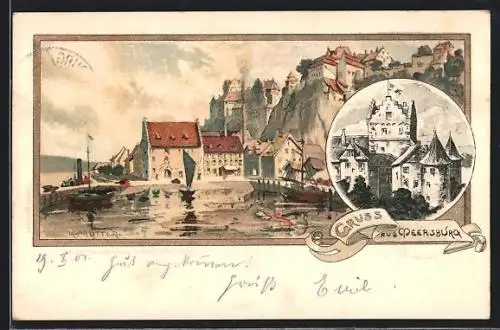 K. MUTTER.
GRUSS
AUS MEERSBURG
19. X 01. Gut angekommen!
Gruß Emil